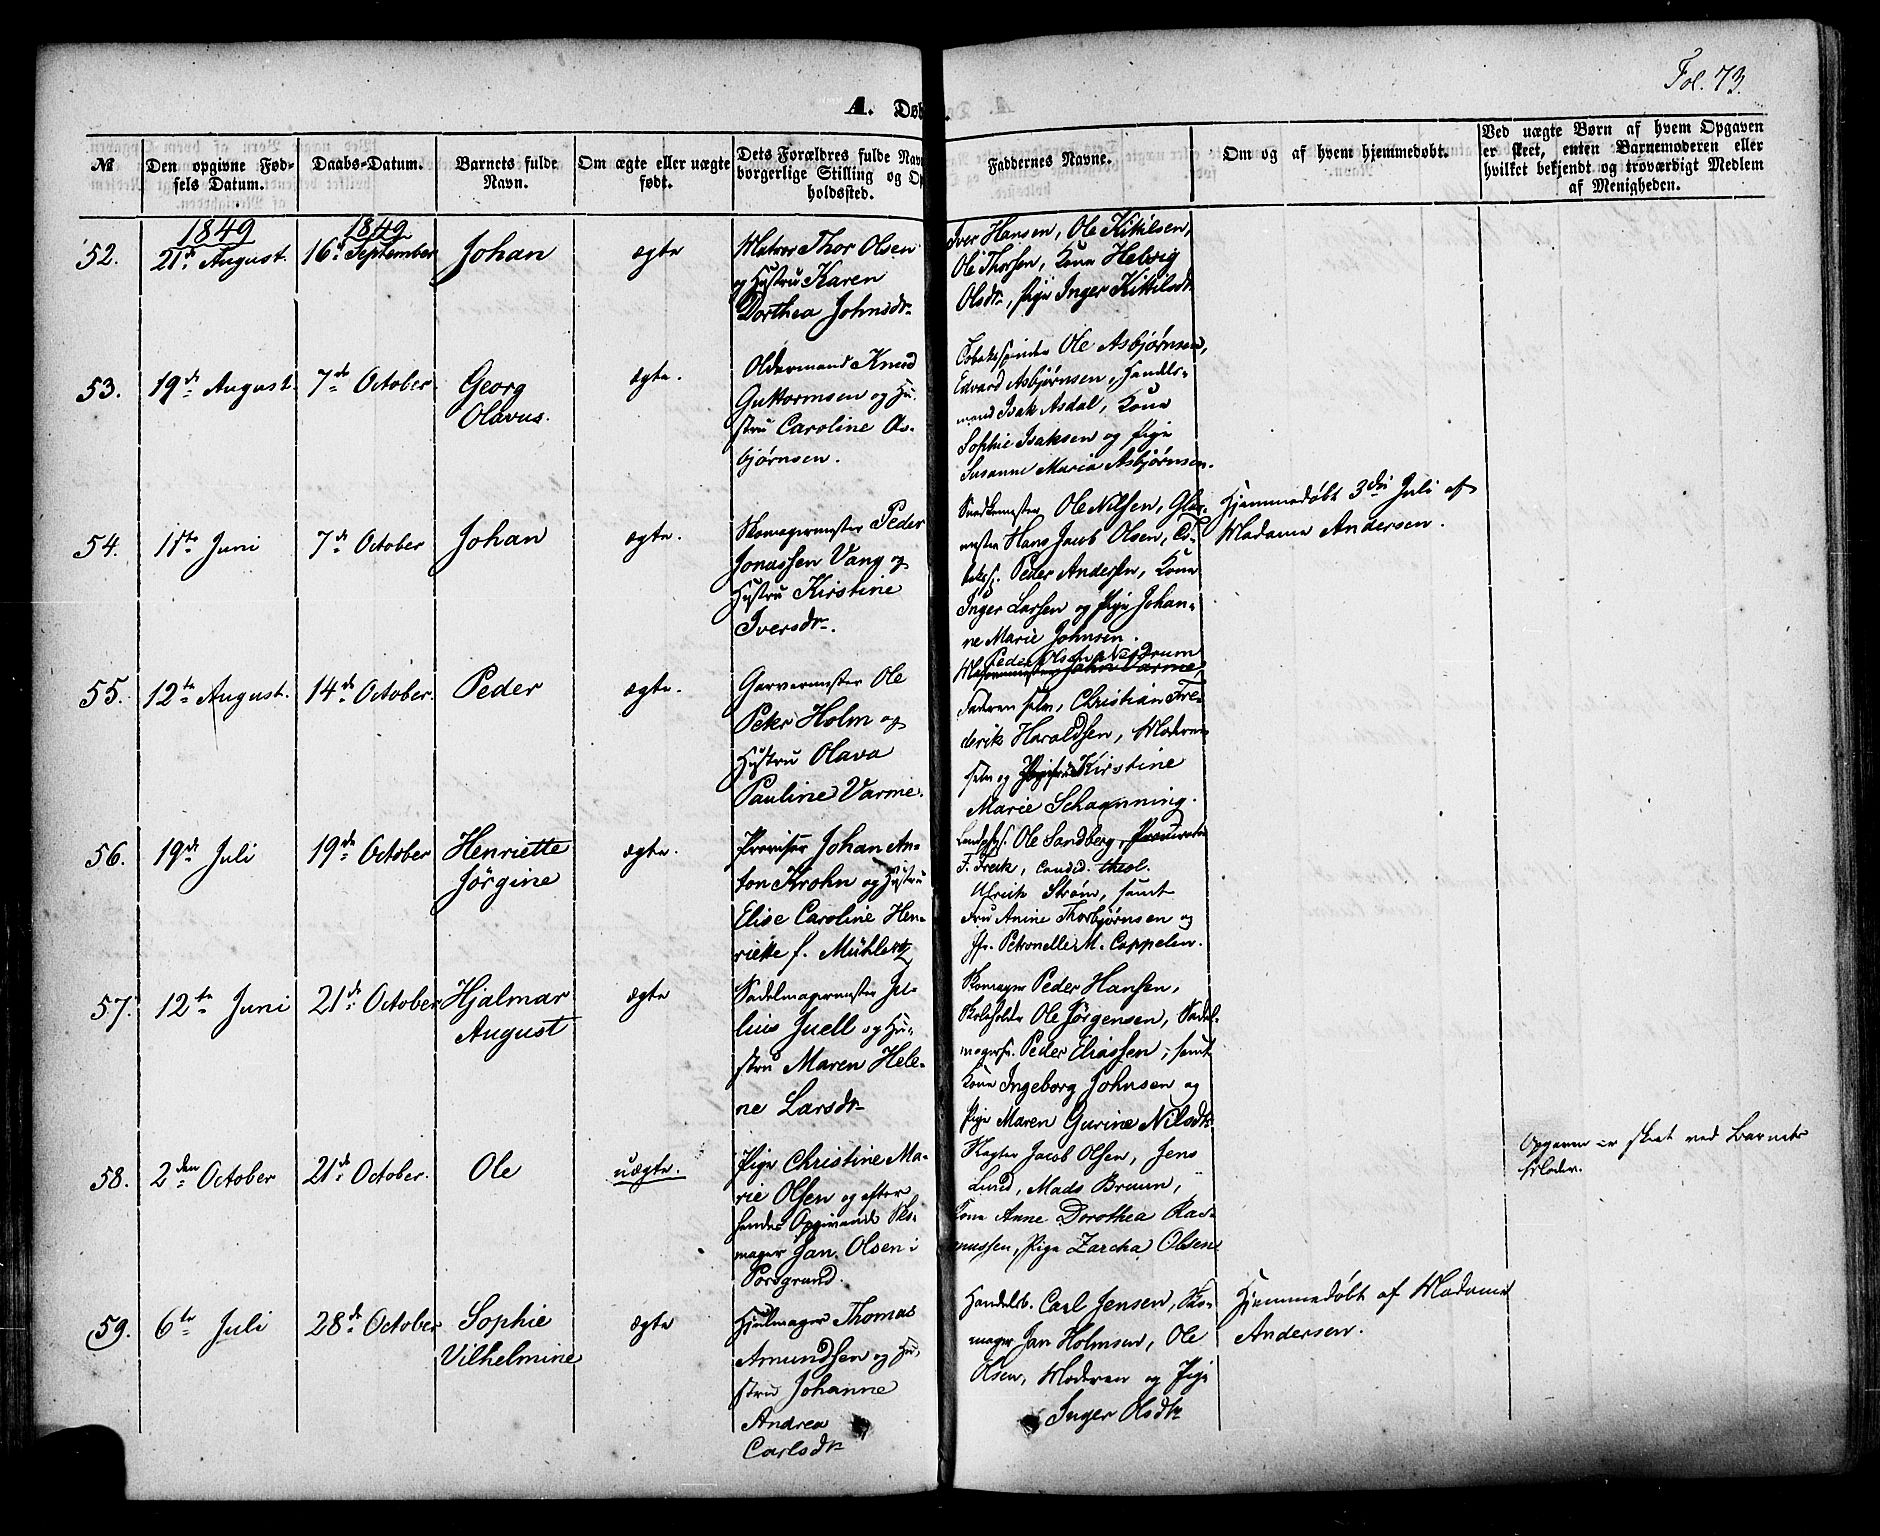 Fol. 73.
A. Døb
№
Den opgivne Fød-
sels Datum.
Daabs-Datum.
Barnets fulde
Navn.
Om ægte eller uægte
født.
Dets Forældres fulde Nav
borgerlige Stilling og Op
holdssted.
Faddernes Navne.
Om og af hvem hjemmedøbt.
Ved uægte Børn af hvem Opgaven
er skeet, enten Barnemoderen eller
hvilket bekjendt og troværdigt Medlem
af Menigheden.
1849
1849
52.
21de August.
16de September
Johan
ægte
Matros Thor Olsen
og Hustru Karen
Dorthea Johnsdr
Iver Hansen, Ole Kittilsen,
Ole Thorsen, Kone Helvig
Olsdr, Pige Inger Kittilsdr
53.
19de August.
7de October.
Georg
Olavus.
ægte.
Oldermand Knud
Guttormsen og Hu-
stru Caroline As-
bjørnsen.
Tobakspinder Ole Asbjørnsen,
Edvard Asbjørnsen, Handels-
mand Isak Asdal, Kone
Sophie Isaksen og Pige
Susanne Maria Asbjørnsen.
54.
11te Juni
7de October
Johan
ægte.
Skomagermester Peder
Jonassen Vang og
Hustru Kirstine
Iversdr.
Snedkermester Ole Nilsen, Glar-
mester Hans Jacob Olsen, To-
baksp. Peder Andersen, Kone
Inger Larsen og Pige Johan-
ne Marie Johnsen.
Hjemmedøbt 3die Juli af
Madame Andersen.
55.
12te August.
14de October.
Peder
ægte.
Garvermester Ole
Peter Holm og
Hustru Olava
Pauline Varme.
Peder Olsen Nedrum
John Varme,
Faderen selv, Christian Fre-
derik Haraldsen, Moderen
selv og Kirstine
Marie Schanning.
56.
19de Juli
19de October
Henriette
Jörgine
ægte.
Provisor Johan An-
ton Krohn og Hustru
Elise Caroline Hen-
riette f. Mühlertz
Ole Sandberg, Procurator
F. Freik, Candid. theol.
Ulrich Strøm, samt
Fru Anine Thorbjørnsen og
Fr. Petronelle M. Cappelen.
57.
12te Juni
21de October
Hjalmar
August
ægte
Sadelmagermester Ju-
lius Juell og Hu-
stru Maren Hele-
ne Larsdr
Skomager Peder Hansen,
Skoleholder Ole Jørgensen, Sadel-
magersv. Peder Eliassen, samt
Kone Ingeborg Johnsen og
Pige Maren Gurine Nilsdr.
58.
2den October
21de October.
Ole
uægte.
Pige Christine Ma-
rie Olsen og efter
hendes Opgivende Sko-
mager Jan Olsen i
Porsgrund.
Jacob Olsen, Jens
Lund, Mads Bruun,
Kone Anne Dorothea Ras-
mussen, Pige Zarcha Olsen
Opgaven er skeet ved Barnets
Fader.
59.
6te Juli
28de October
Sophie
Vilhelmine
ægte
Hjulmager Thomas
Amundsen og Hu-
stru Johanne
Andrea
Carlsdr
Handelsb. Carl Jensen, Sko-
mager Jan Holmsen, Ole
Olsen, Moderen og Pige
Inger Olsdr
Hjemmedøbt af Madame
Andersen.